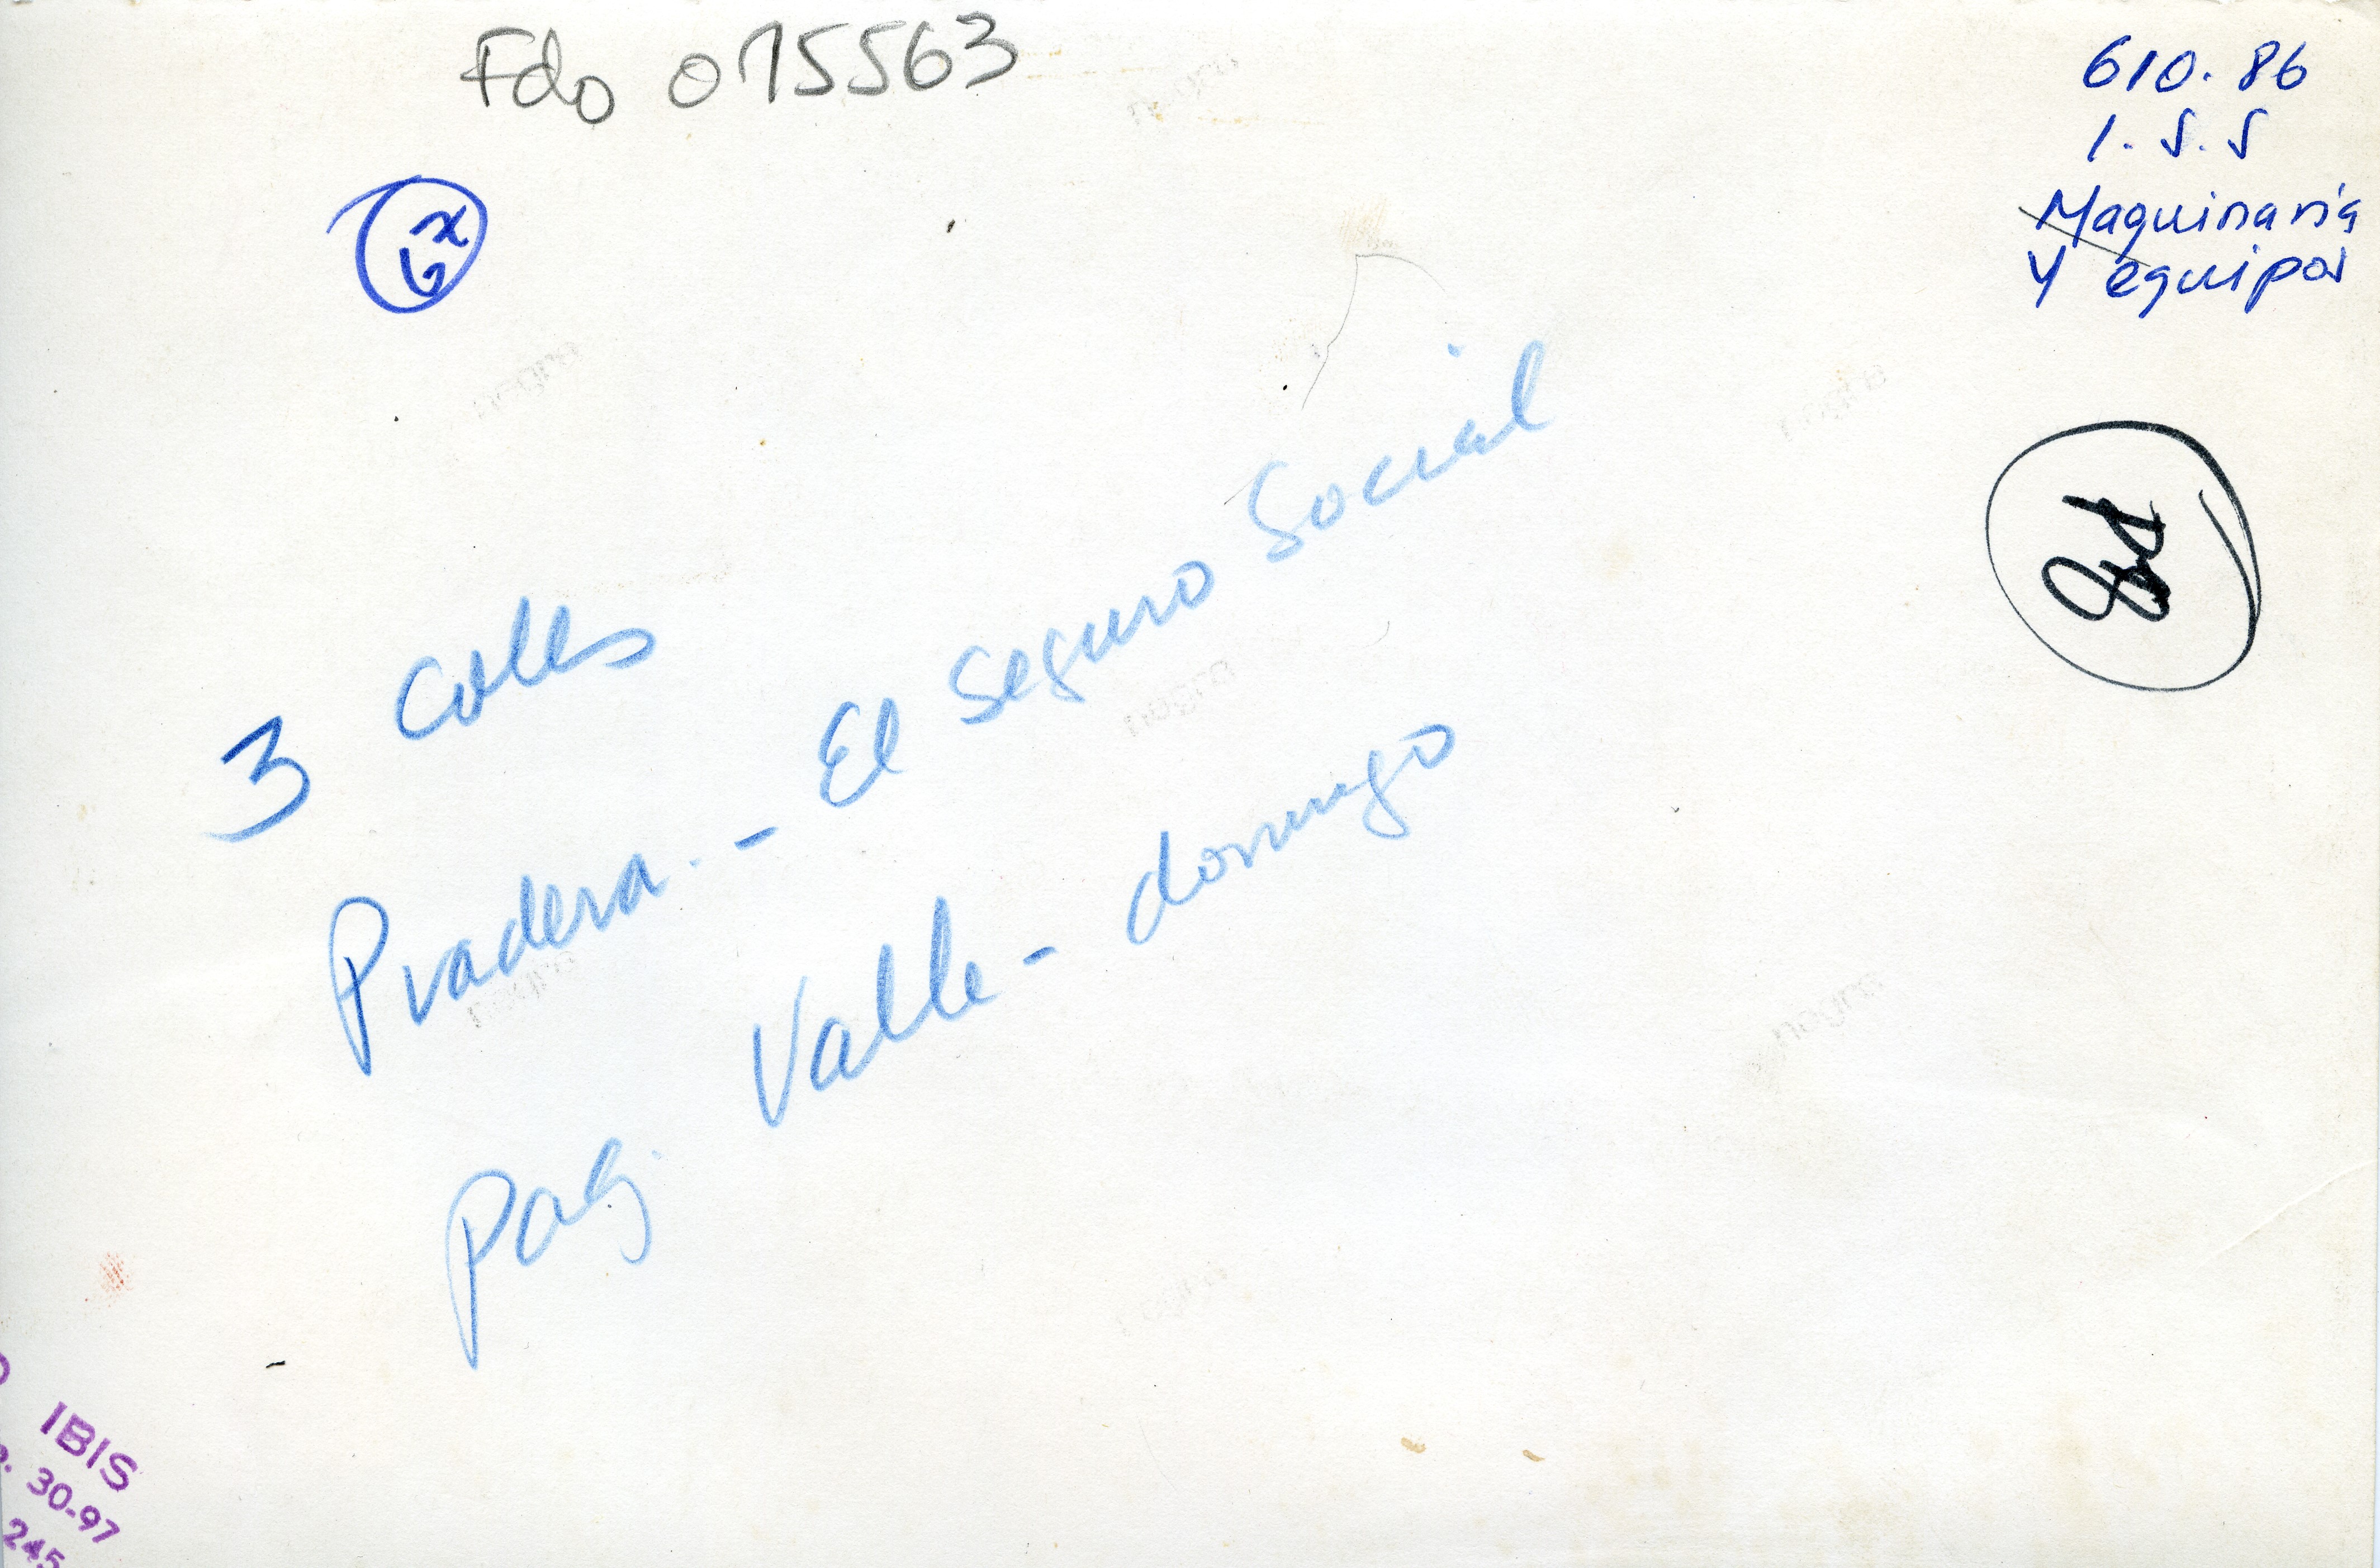 Fdo 015563
610.86
I.S.S
Maquinaria
y equipos
3 Colles
Pradera. - El Seguro Social
Pag. Valle - domingo
IBIS
30-97
245